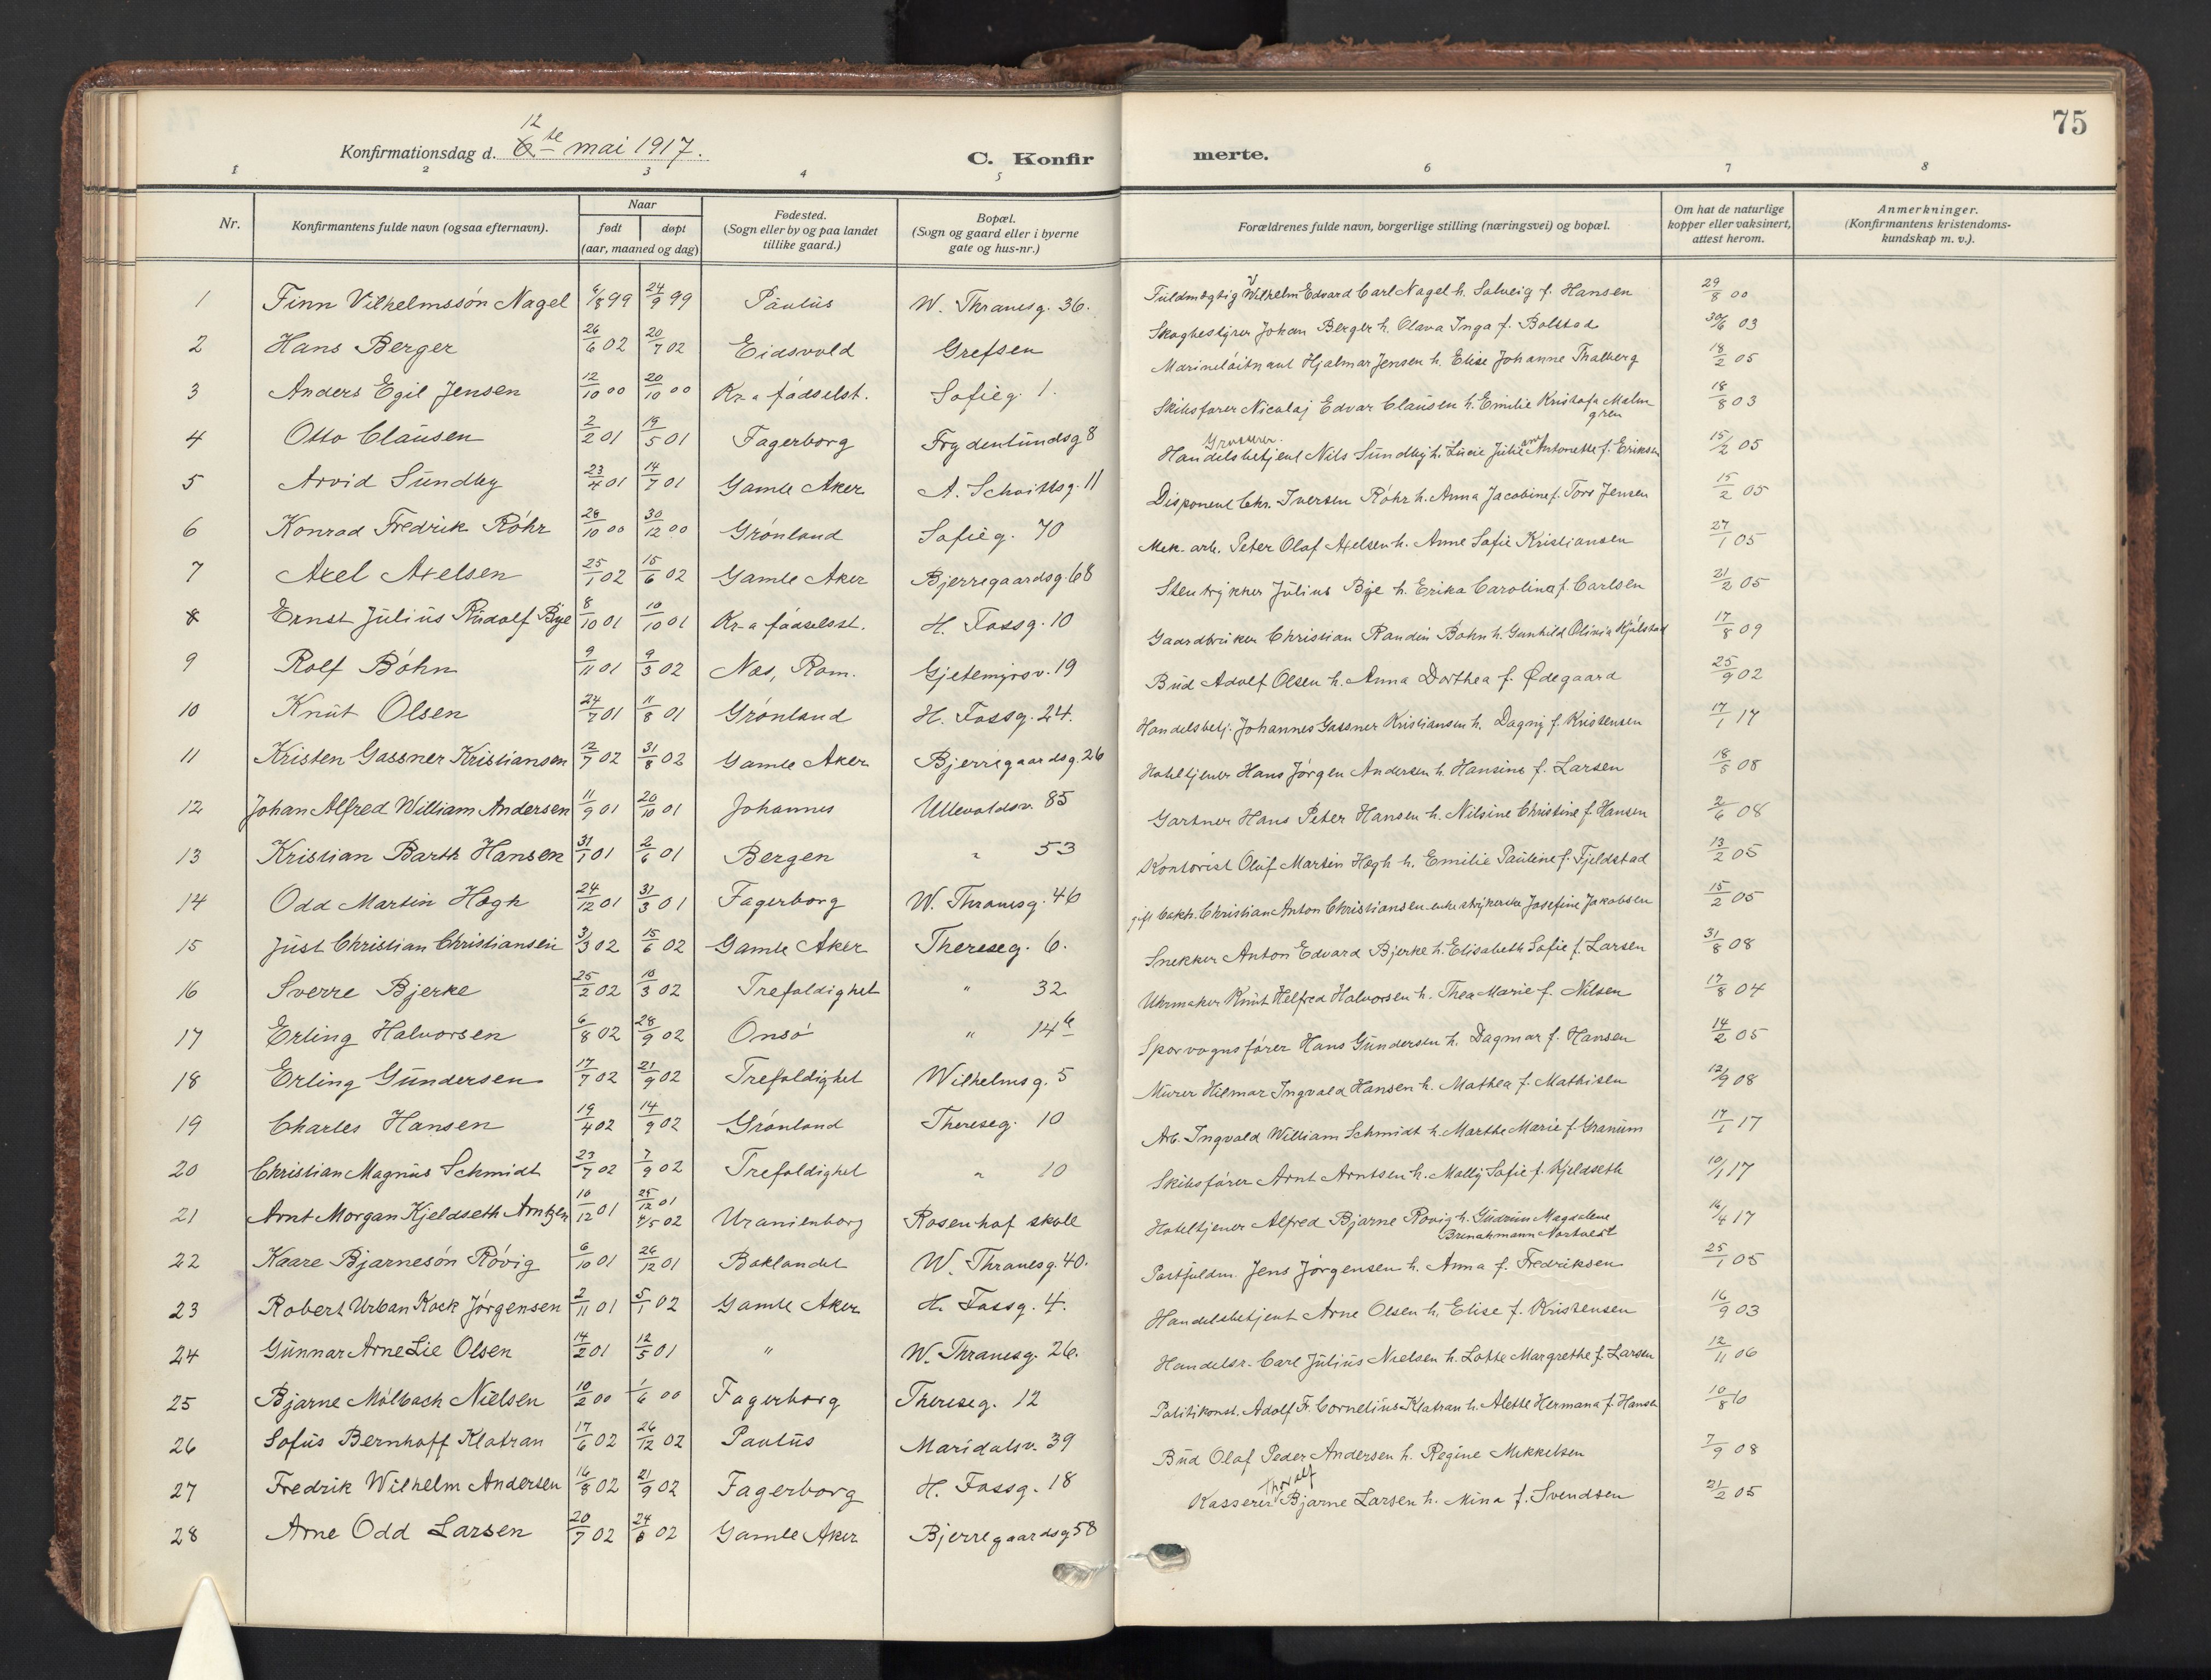 75
Konfirmationsdag d. 6te 12 mai 1917.
C. Konfirmerte.
1 2 3 4 5 6 7 8
Nr. Konfirmantens fulde navn (ogsaa efternavn). Naar født døpt (aar, maaned og dag) Fødested. (Sogn eller by og paa landet tillike gaard.) Bopæl. (Sogn og gaard eller i byerne gate og hus-nr.) Forældrenes fulde navn, borgerlige stilling (næringsvei) og bopæl. Om hat de naturlige kopper eller vaksinert, attest herom. Anmerkninger. (Konfirmantens kristendoms-kundskap m. v.).
1 Finn Vilhelmssón Nagel 6/8 99 24/9 99 Paulus W. Thranesg. 36. Fuldmægtig Wilhelm Edvard Carl Nagel h. Solveig f. Hansen 29/8 00
2 Hans Berger 26/6 02 20/7 02 Eidsvold Grefsen Skogbestyrer Johan Berger h. Olava Inga f. Bolstad 30/6 03
3 Anders Egil Jensen 12/10 00 20/10 00 Kr-a fødselst. Sofieg. 1. Marineløitnant Hjalmar Jensen h. Elise Johanne Thalberg 18/2 05
4 Otto Clausen 2/2 01 19/5 01 Fagerborg Frydenlundsg 8 Skibsfører Nicolaj Edvar Clausen h. Emilie Kristofa Malmgren 18/8 03
5 Arvid Sundby 23/4 01 14/7 01 Gamle Aker A. Schvittsg. 11 Handelsbetjent Grosserer Nils Sundby h. Lucie Julie Antonette f. Eriksen 15/2 05
6 Konrad Fredrik Róhr 28/10 00 30/12 00 Grónland Sofieg. 70 Disponent Chr. Iversen Róhr h. Anna Jacobine f. Tors Jensen 15/2 05
7 Axel Axelsen 25/1 02 15/6 02 Gamle Aker Bjerregaardsg. 68 Mek. arb. Peter Olaf Axelsen h. Anne Sofie Kristiansen 27/1 05
8 Ernst Julius Rudolf Bye 8/10 01 10/10 01 Kr-a fødselsst. H. Fossg. 10 Stentrykker Julius Bye h. Erika Caroline f. Carlsen 21/2 05
9 Rolf Bóhn 9/11 01 9/3 02 Nes, Rom. Gjetemyrsv. 19 Gaardbruker Christian Randin Bohn h. Gunhild Olivia Hjólstad 17/8 09
10 Knut Olsen 24/7 01 11/8 01 Grónland H. Fossg. 24. Bud Adolf Olsen h. Anna Dorthea f. Ødegaard 25/9 02
11 Kristen Gassner Kristiansen 12/7 02 31/8 02 Gamle Aker Bjerregaardsg. 26 Handelsbetj. Johannes Gassner Kristiansen h. Dagny f. Kristensen 17/1 17
12 Johan Alfred William Andersen 11/9 01 20/10 01 Johannes Ullevoldsv. 85 Hoteltjener Hans Jørgen Andersen h. Hansine f. Larsen 18/5 08
13 Kristian Barth Hansen 31/1 01 2/6 01 Bergen " 53 Gartner Hans Peter Hansen h. Nilsine Christine f. Hansen 2/6 08
14 Odd Martin Høgh 24/12 01 31/3 01 Fagerborg W. Thranesg. 46 Kontorist Oluf Martin Høgh h. Emilie Pauline f. Fjeldstad 13/2 05
15 Just Christian Christiansen 31/3 02 15/6 02 Gamle Aker Thereseg. 6. Christian Anton Christiansen Josefine Jakobsen 15/2 05
16 Sverre Bjerke 25/2 02 10/3 02 Trefoldighet " 32 Snekker Anton Edvard Bjerke h. Elisabeth Sofie f. Larsen 31/8 08
17 Erling Halvorsen 6/8 02 28/9 02 Onsó " 14b Uhrmaker Knut Helfred Halvorsen h. Thea Marie f. Nilsen 17/8 04
18 Erling Gundersen 17/7 02 21/9 02 Trefoldighet Wilhelmsg. 5 Sporvognsfører Hans Gundersen h. Dagmar f. Hansen 14/2 05
19 Charles Hansen 19/4 02 14/9 02 Grónland Thereseg. 10 Murer Hilmar Ingvald Hansen h. Mathea f. Mathisen 12/9 08
20 Christian Magnus Schmidt 23/7 02 7/9 02 Trefoldighet " 10 Arb. Ingvald William Schmidt h. Marthe Marie f. Granum 17/1 17
21 Arnt Morgan Kjeldseth Arntzen 10/12 01 25/12 01 4/5 02 Uranienborg Rosenhof skole Skibsfører Arnt Arntsen h. Mally Sofie f. Kjeldseth 10/1 17
22 Kaare Bjarnesón Róvig 6/10 01 26/12 01 Baklandet W. Thranesg. 40. Hoteltjener Alfred Bjarne Rovig h. Gudrun Magdalene Nortvedt 16/4 17
23 Robert Urban Kock Jórgensen 2/11 01 5/1 02 Gamle Aker H. Fossg. 4. Postfuldm. Jens Jørgensen h. Anna f. Fredriksen 25/1 05
24 Gunnar Arne Lie Olsen 14/2 01 12/5 01 " W. Thranesg. 26. Handelsbetjent Arne Olsen h. Elise f. Kristensen 16/9 03
25 Bjarne Mólbach Nielsen 10/2 00 1/6 00 Fagerborg Thereseg. 12 Handelsr. Carl Julius Nielsen h. Lotte Margrethe f. Larsen 12/11 06
26 Sofus Bernhoff Klatran 17/6 02 26/12 02 Paulus Maridalsv. 39 Politikonst. Adolf Fr. Cornelius Klatran h. Alette Hermana f. Hansen 10/8 10
27 Fredrik Wilhelm Andersen 16/8 02 21/9 02 Fagerborg H. Fossg. 18 Bud Olaf Peder Andersen h. Regine Mikkelsen 7/9 08
28 Arne Odd Larsen 20/7 02 24/8 02 Gamle Aker Bjerregaardsg 58 Kasserer Thoralf Bjarne Larsen h. Mina f. Svendsen 21/2 05